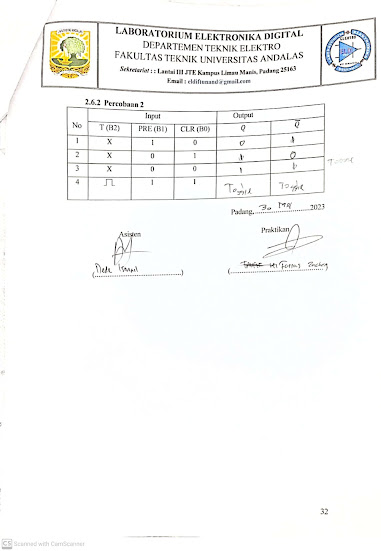 LABORATORIUM ELEKTRONIKA DIGITAL
DEPARTEMEN TEKNIK ELEKTRO
FAKULTAS TEKNIK UNIVERSITAS ANDALAS
Sekretariat : : Lantai III JTE Kampus Limau Manis, Padang 25163
Email : eldiftunand@gmail.com
2.6.2 Percobaan 2
No Input Output
T (B2) PRE (B1) CLR (B0) Q Q̅
1 X 1 0 0 1
2 X 0 1 1 0
3 X 0 0 1 1
4 1 1 Toggle Toggle
Padang, 30 Mei 2023
Asisten Praktikan
32
CS Scanned with CamScanner